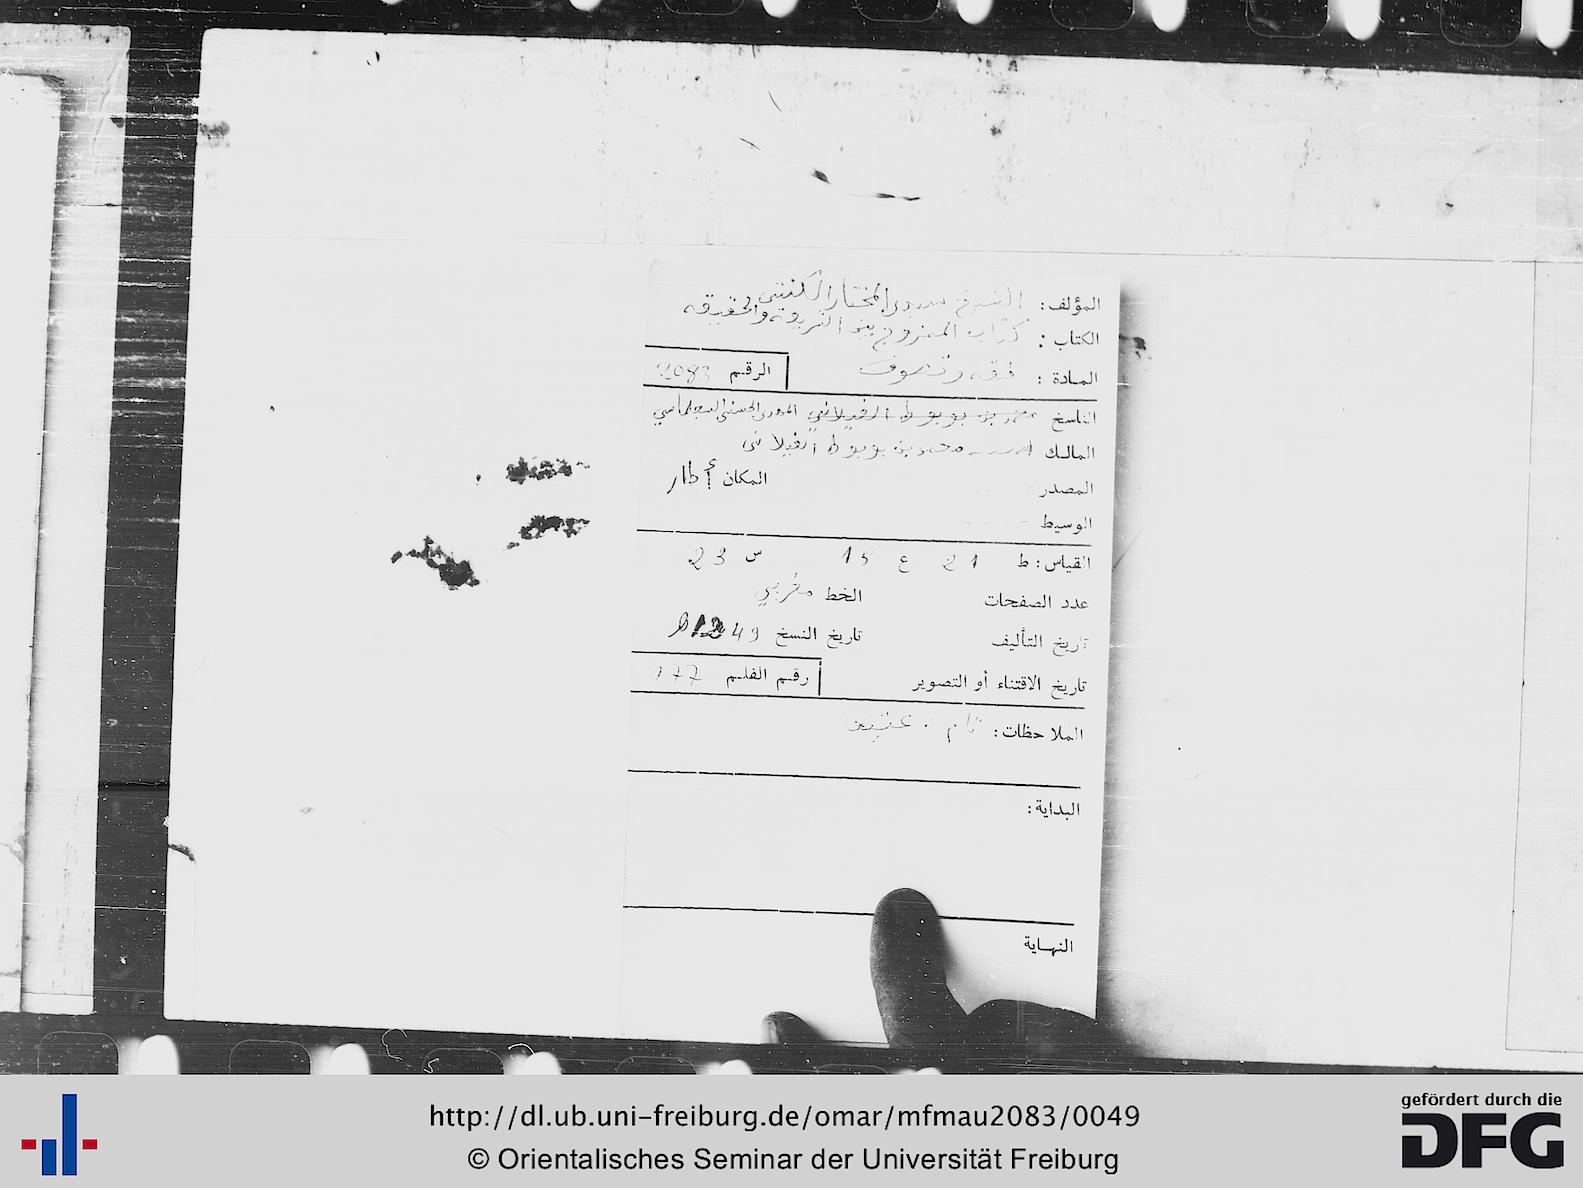 المؤلف: الشيخ سيدي المختار الكنتي
الكتاب: كتاب الممزوج بين الشريعة والحقيقة
المادة: فقه وتصوف الرقم 2083
الناسخ محمد بن بوبوط الغيلاني
المالك محمد بن بوبوط الغيلاني
المصدر المكان أطار
الوسيط
القياس: ط 21 ع 15 س 23
عدد الصفحات الخط مغربي
تاريخ التأليف تاريخ النسخ 1249
تاريخ الاقتناء أو التصوير رقم الفلم 177
الملاحظات: تام. عتيق
البداية:
النهاية
http://dl.ub.uni-freiburg.de/omar/mfmau2083/0049
© Orientalisches Seminar der Universität Freiburg
gefördert durch die
DFG